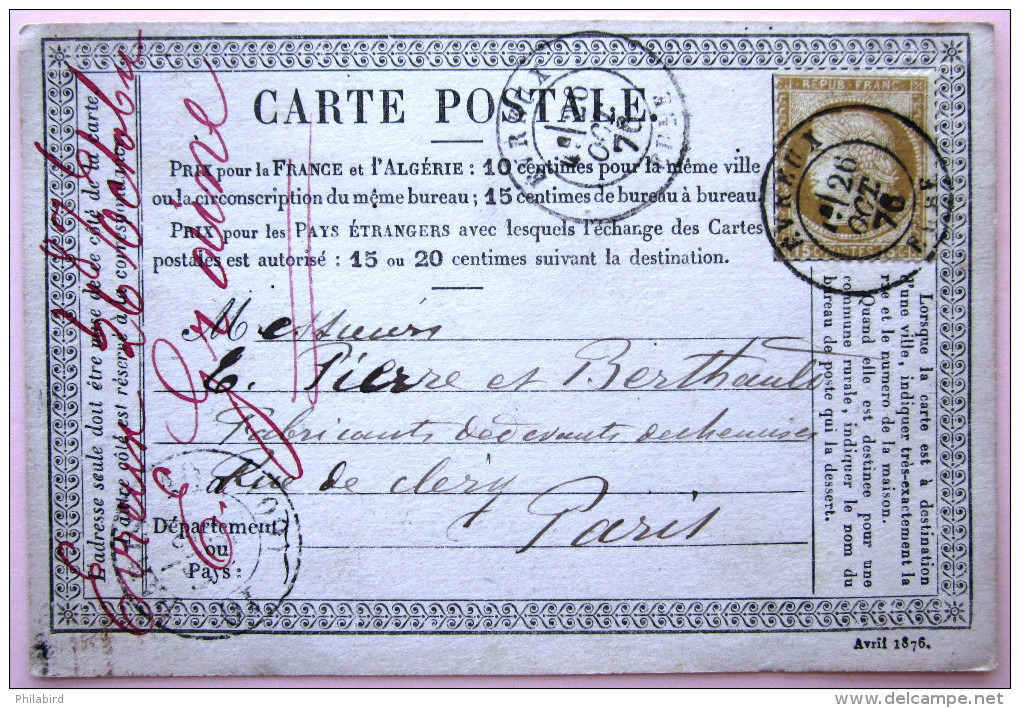 CARTE POSTALE.
PRIX pour la FRANCE et l'ALGÉRIE : 10 centimes pour la même ville
ou la circonscription du même bureau ; 15 centimes de bureau à bureau.
PRIX pour les PAYS ÉTRANGERS avec lesquels l'échange des Cartes
postales est autorisé : 15 ou 20 centimes suivant la destination.
Messieurs
E. Pierre et Berthault
Fabricants de devants de chemises
Rue de Cléry
Paris
Département
ou
Pays :
L'adresse seule doit être mise de ce côté de la carte
L'autre côté est réservé à la correspondance.
Evreux
Lorsque la carte est à destination
d'une ville, indiquer très-exactement la
rue et le numero de la maison.
Quand elle est destinée pour une
commune rurale, indiquer le nom du
bureau de poste qui la dessert.
REPUB FRANC
EVREUX
26
OCT.
76
EURE
EVREUX
26
OCT
76
EURE
Avril 1876.
Philabird
delcampe.net